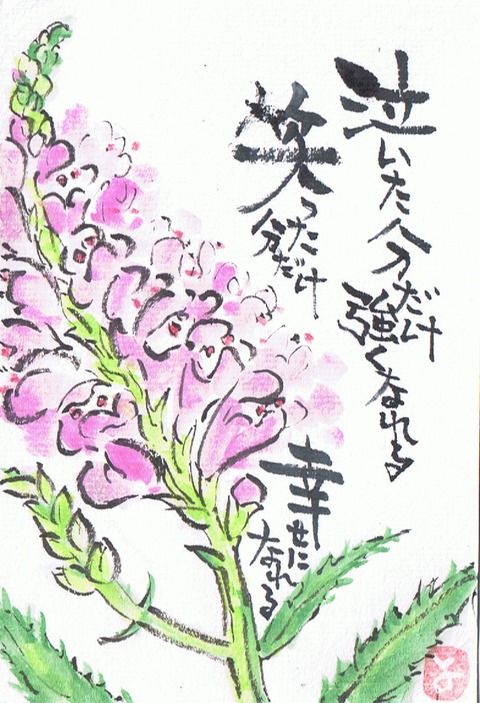 泣いた分だけ
強くなれる
笑った
分だけ
幸せに
なれる
子